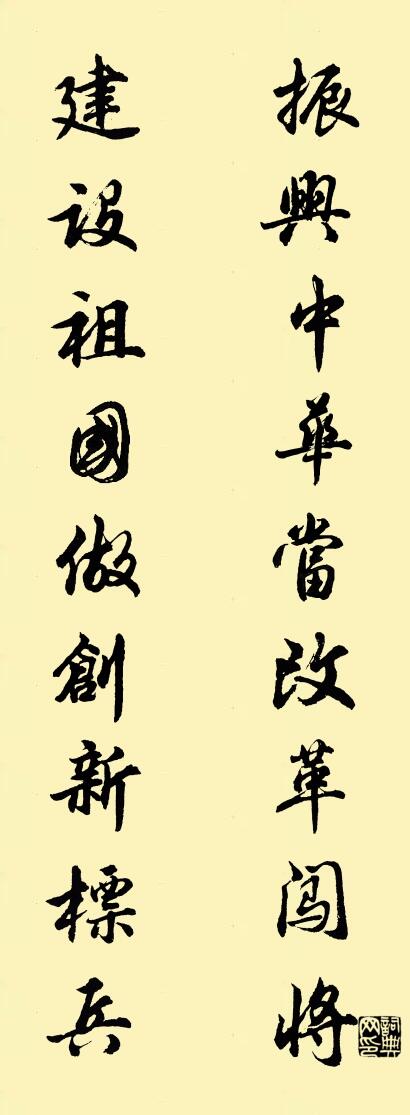 振興中華當改革闯將
建設祖國做創新標兵
詞典網印